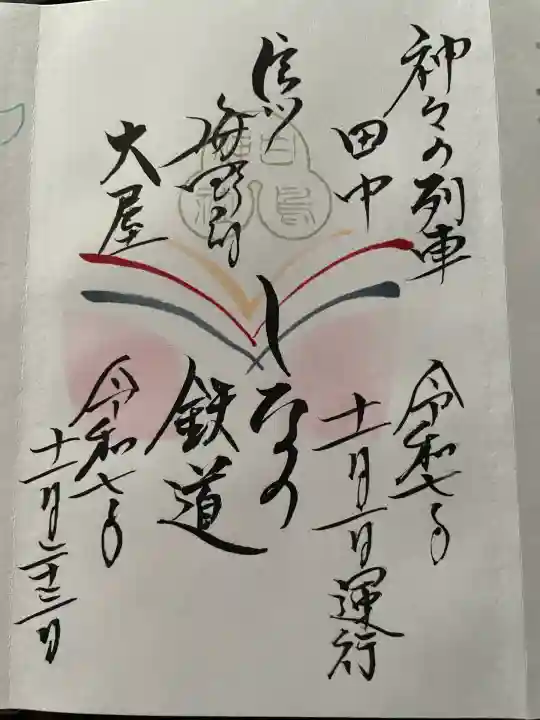 神々の列車
田中
信州
海野
大屋
しなの
鉄道
令和七年
十一月一日運行
令和七年
十一月二十三日
白鳥
神社